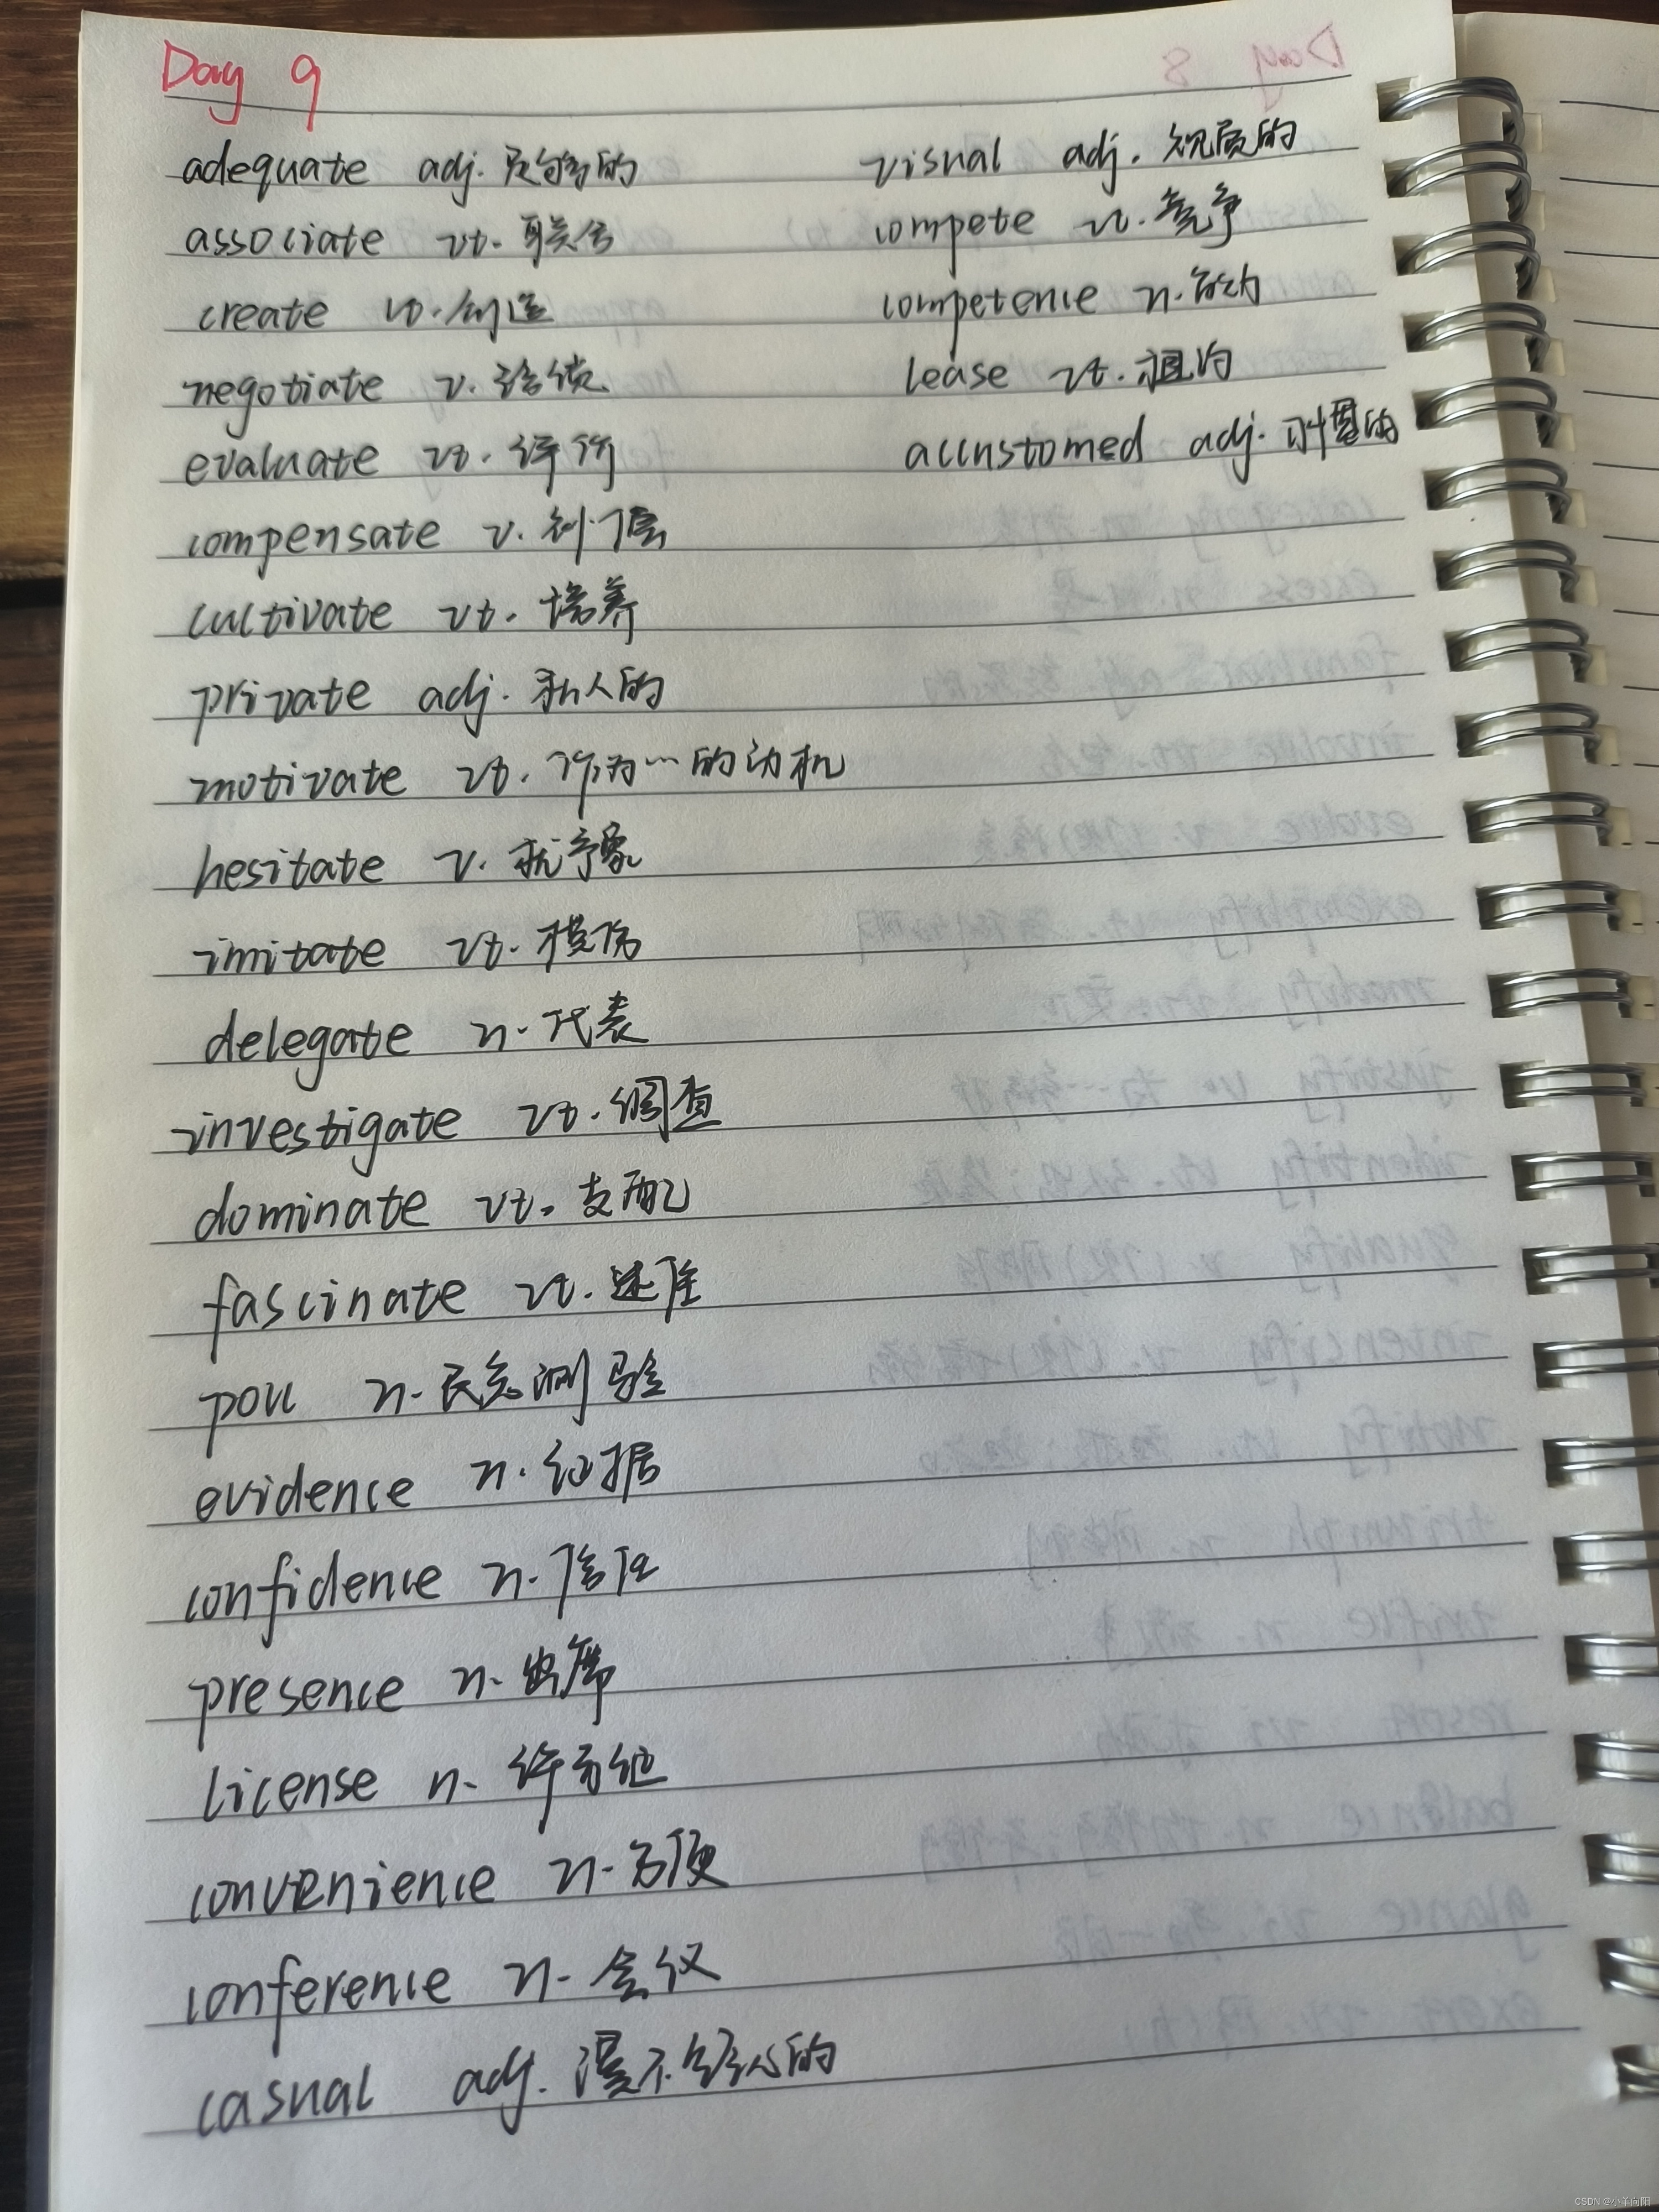 Day 9
adequate adj. 足够的
associate vt. 联合
create vt. 创造
negotiate v. 洽谈
evaluate vt. 评价
compensate v. 补偿
cultivate vt. 培养
private adj. 私人的
motivate vt. 作为…的动机
hesitate v. 犹豫
imitate vt. 模仿
delegate n. 代表
investigate vt. 调查
dominate vt. 支配
fascinate vt. 迷住
poll n. 民意测验
evidence n. 证据
confidence n. 信任
presence n. 出席
license n. 许可证
convenience n. 方便
conference n. 会议
casual adj. 漫不经心的
visual adj. 视觉的
compete vi. 竞争
competence n. 能力
lease vt. 租约
accustomed adj. 习惯的
CSDN @小羊向阳